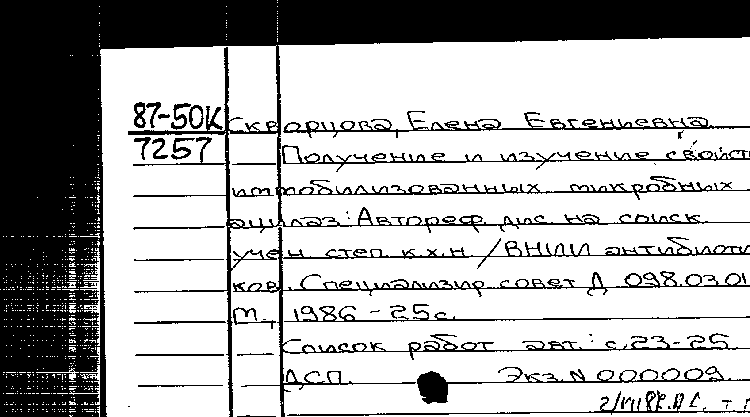 87-50К Скворцова, Елена Евгениевна
7257 Получение и изучение свойст
иммобилизованных микробных
ацилаз: Автореф. дис. на соиск.
учен. степ. к.х.н. /ВНИИ антибиоти
ков. Специализир. совет Д 098.03.01
М., 1986 - 25с.
Список работ авт.: с.23-25
ДСП. Экз. N 000009.